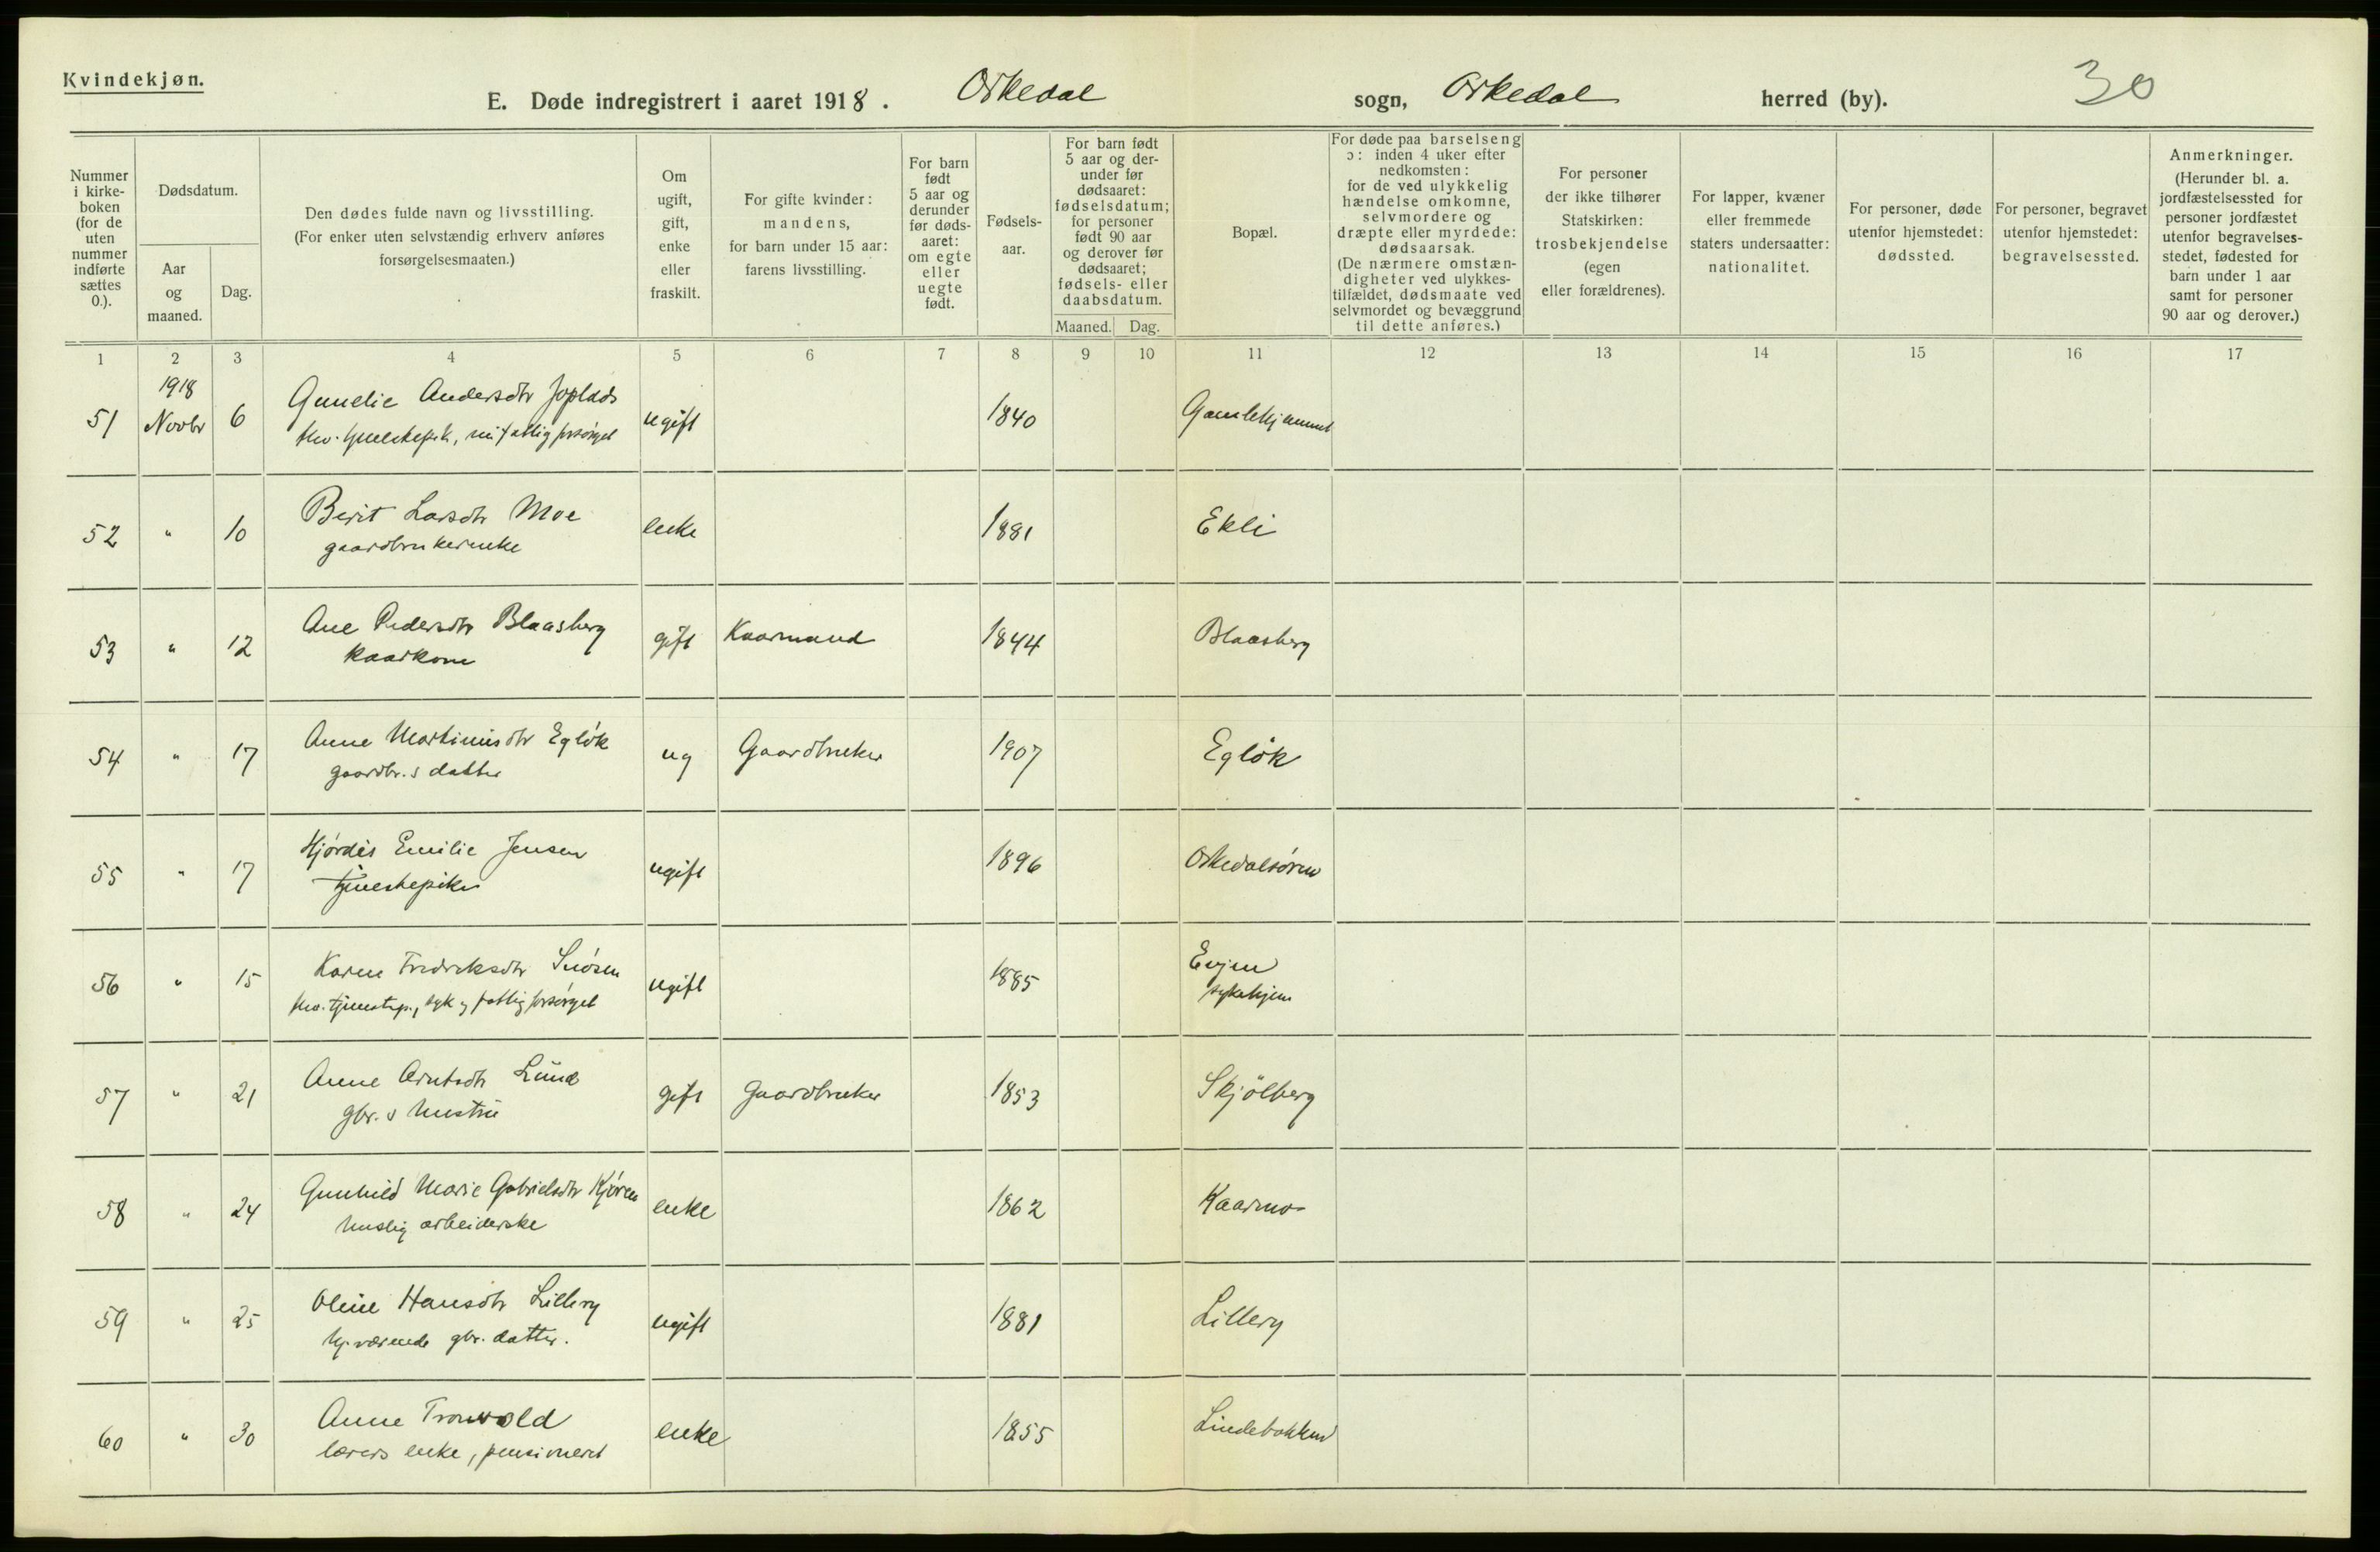 Kvindekjøn.
E. Døde indregistrert i aaret 1918. Orkedal sogn, Orkedal herred (by). 30
Nummer i kirke-boken (for de uten nummer indførte sættes 0.).
Dødsdatum.
Aar og maaned.
Dag.
Den dødes fulde navn og livsstilling.
(For enker uten selvstændig erhverv anføres forsørgelsesmaaten.)
Om ugift, gift, enke eller fraskilt.
For gifte kvinder: mandens, for barn under 15 aar: farens livsstilling.
For barn født 5 aar og derunder før døds-aaret: om egte eller uegte født.
Fødsels-aar.
For barn født 5 aar og der-under før dødsaaret: fødselsdatum; for personer født 90 aar og derover før dødsaaret; fødsels- eller daabsdatum.
Maaned. Dag.
Bopæl.
For døde paa barselseng ɔ: inden 4 uker efter nedkomsten: for de ved ulykkelig hændelse omkomne, selvmordere og dræpte eller myrdede: dødsaarsak. (De nærmere omstæn-digheter ved ulykkes-tilfældet, dødsmaate ved selvmordet og bevæggrund til dette anføres.)
For personer der ikke tilhører Statskirken: trosbekjendelse (egen eller forældrenes).
For lapper, kvæner eller fremmede staters undersaatter: nationalitet.
For personer, døde utenfor hjemstedet: dødssted.
For personer, begravet utenfor hjemstedet: begravelsessted.
Anmerkninger. (Herunder bl. a. jordfæstelsessted for personer jordfæstet utenfor begravelses-stedet, fødested for barn under 1 aar samt for personer 90 aar og derover.)
1 2 3 4 5 6 7 8 9 10 11 12 13 14 15 16 17
1918
51 Novbr 6 Andersdtr ugift 1840 Gamlehjemmet
fattigforsørget
52 " 10 Berit Larsdtr Moe enke 1881 Ekli
gaardbrukerenke
53 " 12 Ane Pedersdtr Blaasberg gift Kaarmand 1844 Blaasberg
kaarkone
54 " 17 Anne Martinusdtr Egløk ug Gaardbruker 1907 Egløk
gaardbr.s datter
55 " 17 Hjørdis Emilie Jensen ugift 1896 Orkedalsøren
tjenestepike
56 " 15 Karen Fredriksdtr Snøsen ugift 1885 Evjen
fhv. tjenestep., syk og fattigforsørget sykehjem
57 " 21 Anne Arntsdtr Lund gift Gaardbruker 1853 Skjölberg
gbr.s hustru
58 " 24 Gunhild Marie Gabrielsdtr Kjøren enke 1862 Kaarmo
huslig arbeiderske
59 " 25 Oline Hansdtr Lillery ugift 1881 Lillery
hj.værende gbr. datter.
60 " 30 Anne Tronvold enke 1855 Lindebakken
lærers enke, pensioneret